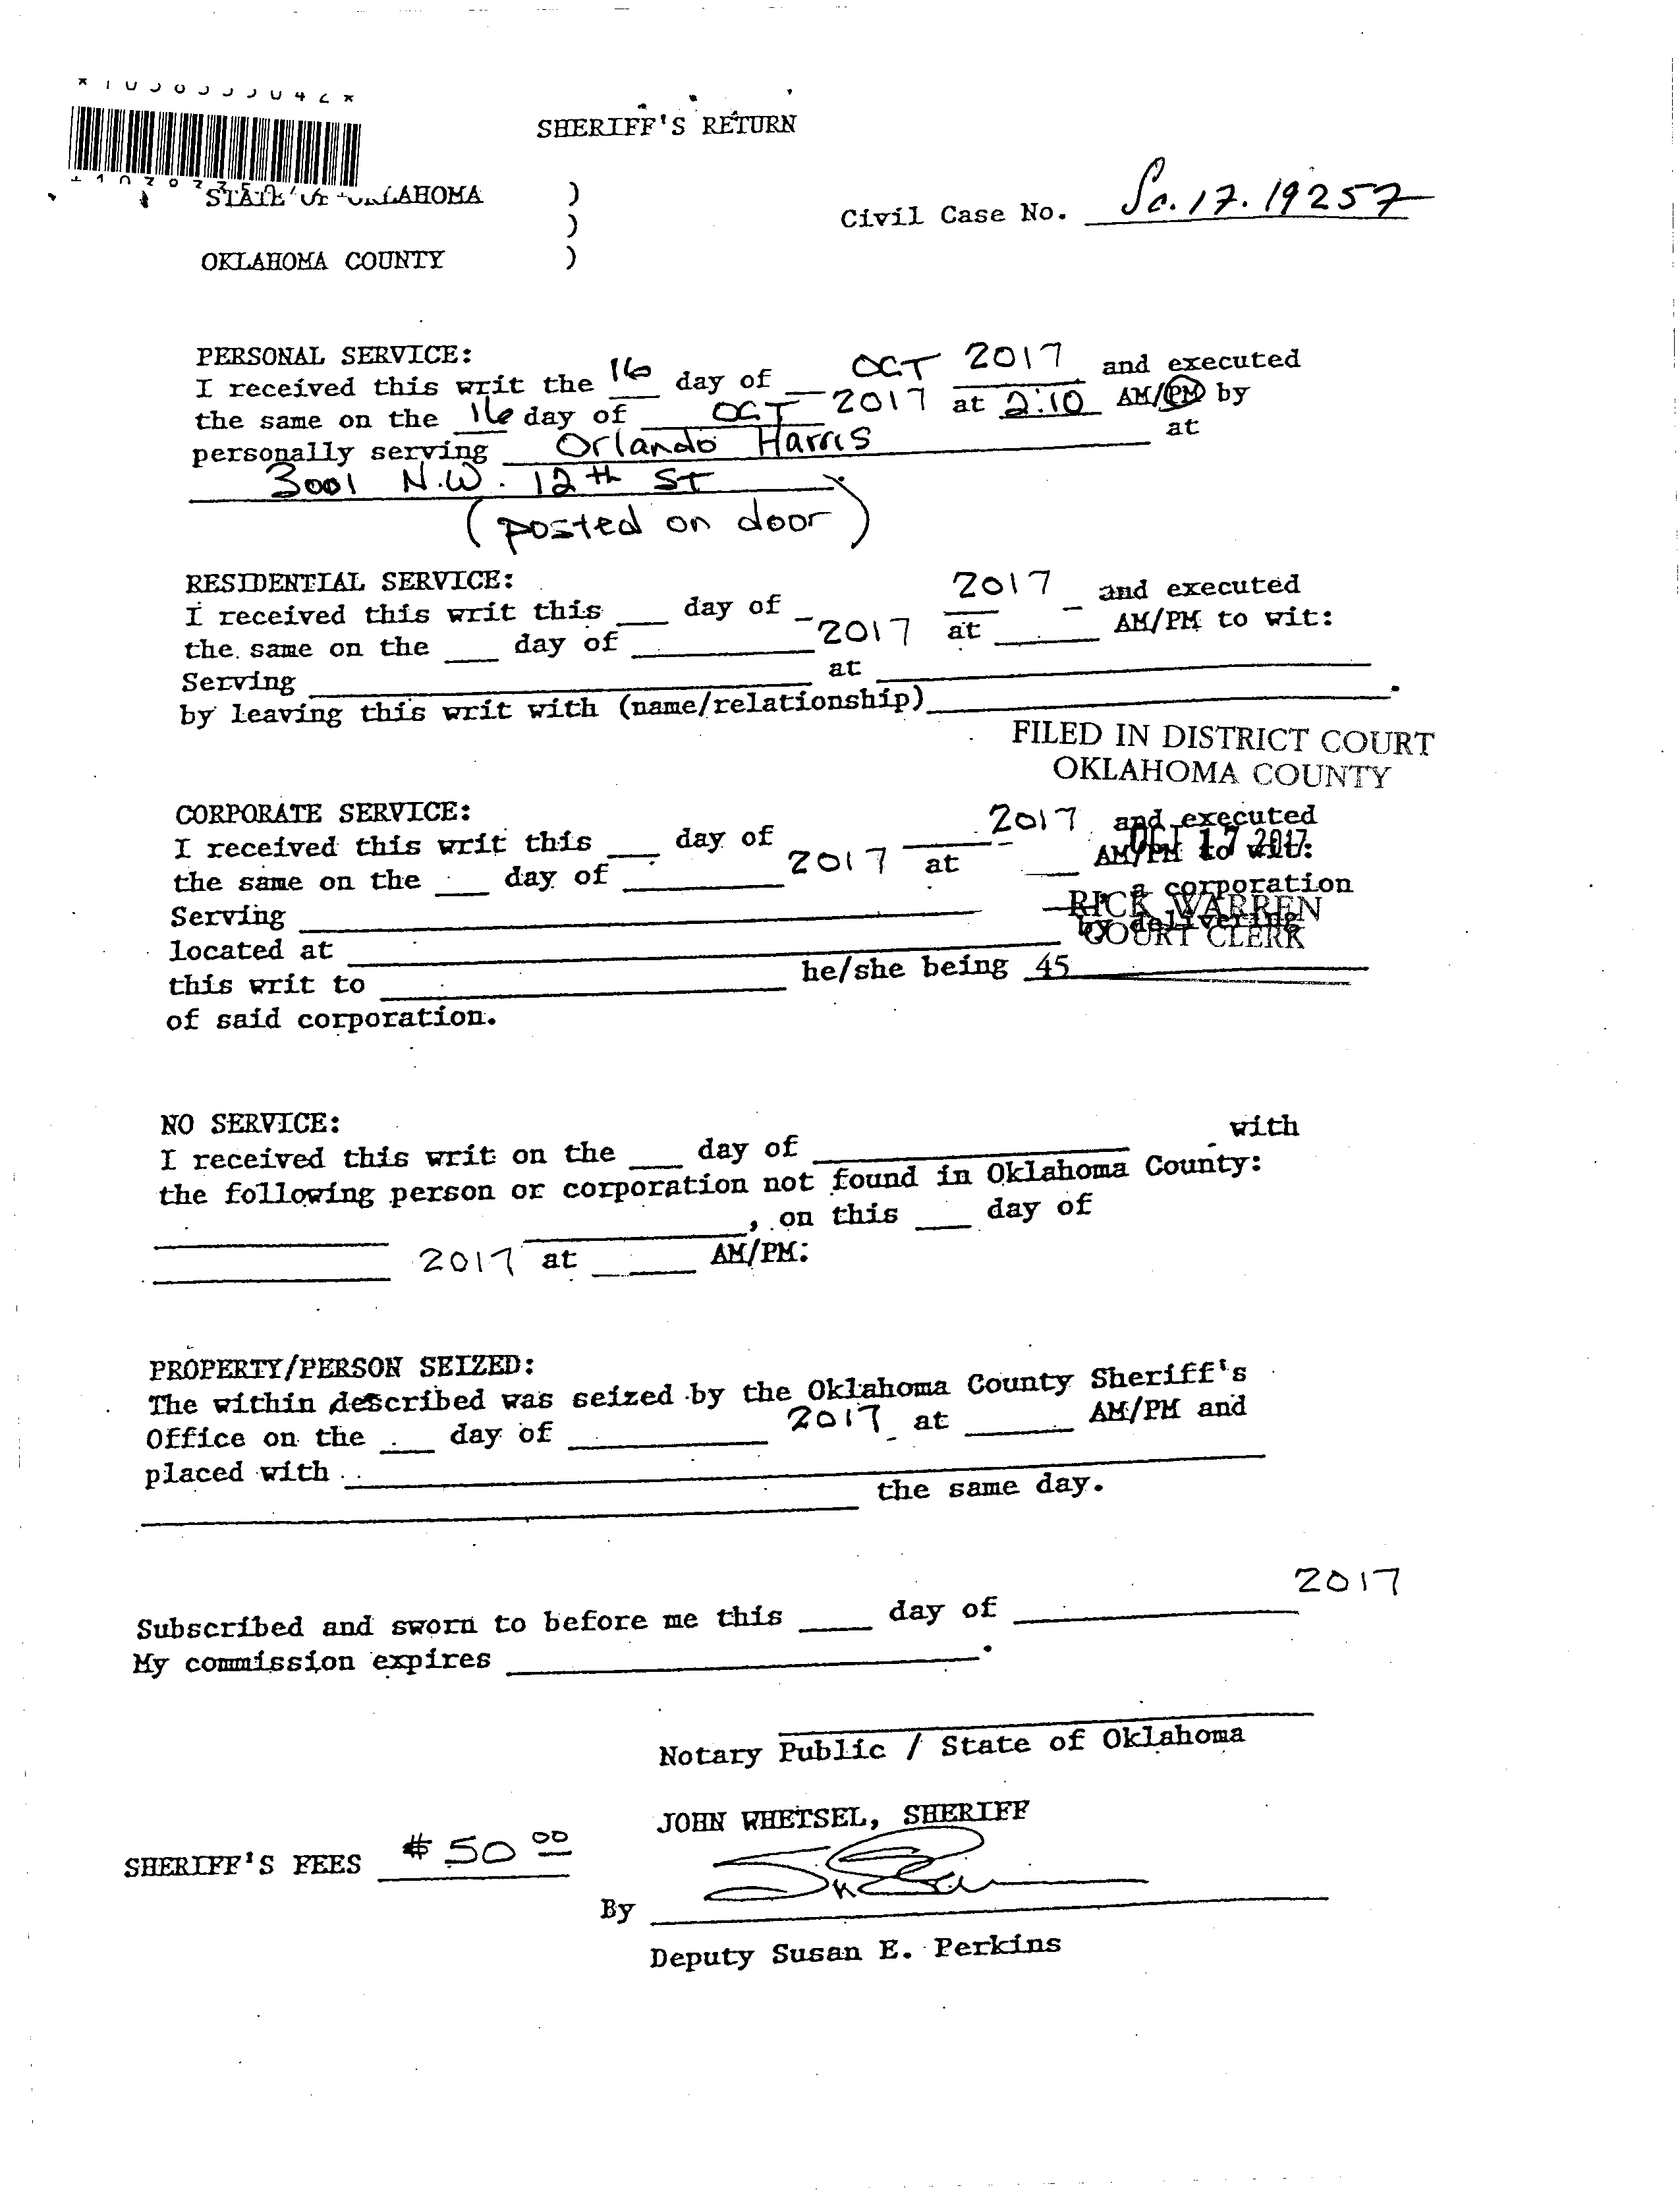 SHERIFF'S RETURN
STATE OF OKLAHOMA )
)
OKLAHOMA COUNTY )
Civil Case No. Sc.17.19257
PERSONAL SERVICE:
I received this writ the 16 day of OCT 2017 and executed
the same on the 16 day of OCT 2017 at 2:10 AM/PM by
personally serving Orlando Harris at
3001 N.W. 12th ST
(posted on door)
RESIDENTIAL SERVICE:
I received this writ this ___ day of ___ 2017 and executed
the same on the ___ day of ___ 2017 at ___ AM/PM to wit:
Serving ___ at ___
by leaving this writ with (name/relationship)___.
FILED IN DISTRICT COURT
OKLAHOMA COUNTY
OCT 17 2017
RICK WARREN
COURT CLERK
45
CORPORATE SERVICE:
I received this writ this ___ day of ___ 2017 and executed
the same on the ___ day of ___ 2017 at ___ AM/PM to wit:
Serving ___, a corporation
located at ___ by delivering
this writ to ___ he/she being ___
of said corporation.
NO SERVICE:
I received this writ on the ___ day of ___ with
the following person or corporation not found in Oklahoma County:
___, on this ___ day of
___ 2017 at ___ AM/PM:
PROPERTY/PERSON SEIZED:
The within described was seized by the Oklahoma County Sheriff's
Office on the ___ day of ___ 2017 at ___ AM/PM and
placed with ___
___ the same day.
Subscribed and sworn to before me this ___ day of ___ 2017
My commission expires ___.
Notary Public / State of Oklahoma
JOHN WHETSEL, SHERIFF
SHERIFF'S FEES $50 00
By
Deputy Susan E. Perkins